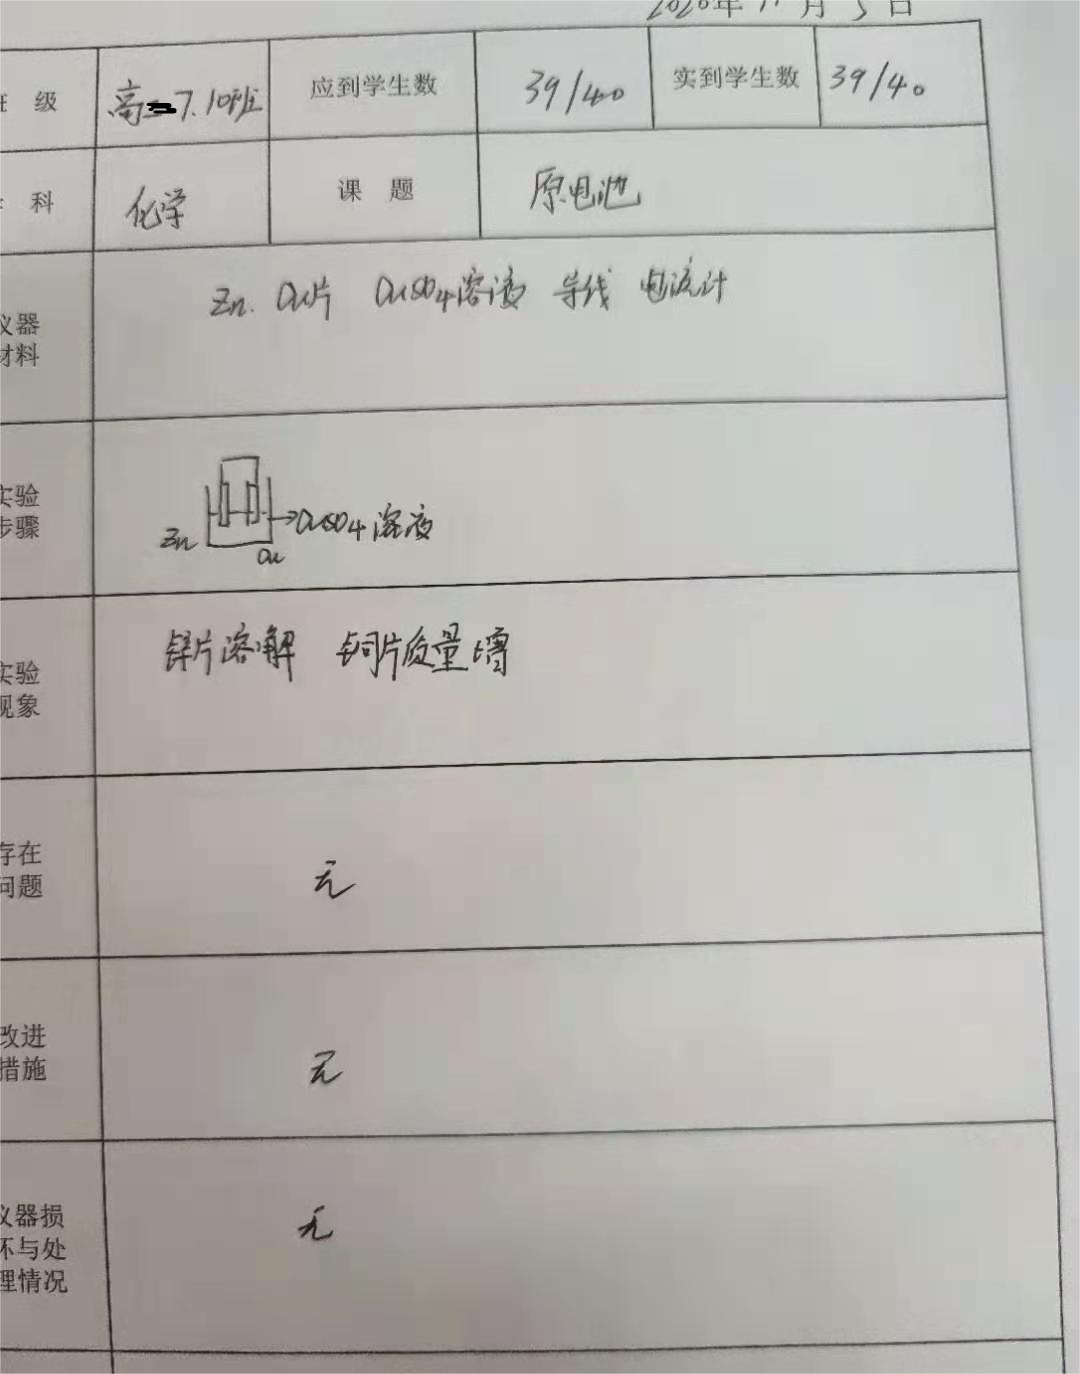 2020年11月5日
级 高二7.10班 应到学生数 39/40 实到学生数 39/40
科 化学 课 题 原电池
仪器
材料
Zn. Cu片 CuSO4溶液 导线 电流计
实验
步骤
Zn Cu CuSO4溶液
实验
现象
锌片溶解 铜片质量增
存在
问题
无
改进
措施
无
仪器损
坏与处
理情况
无